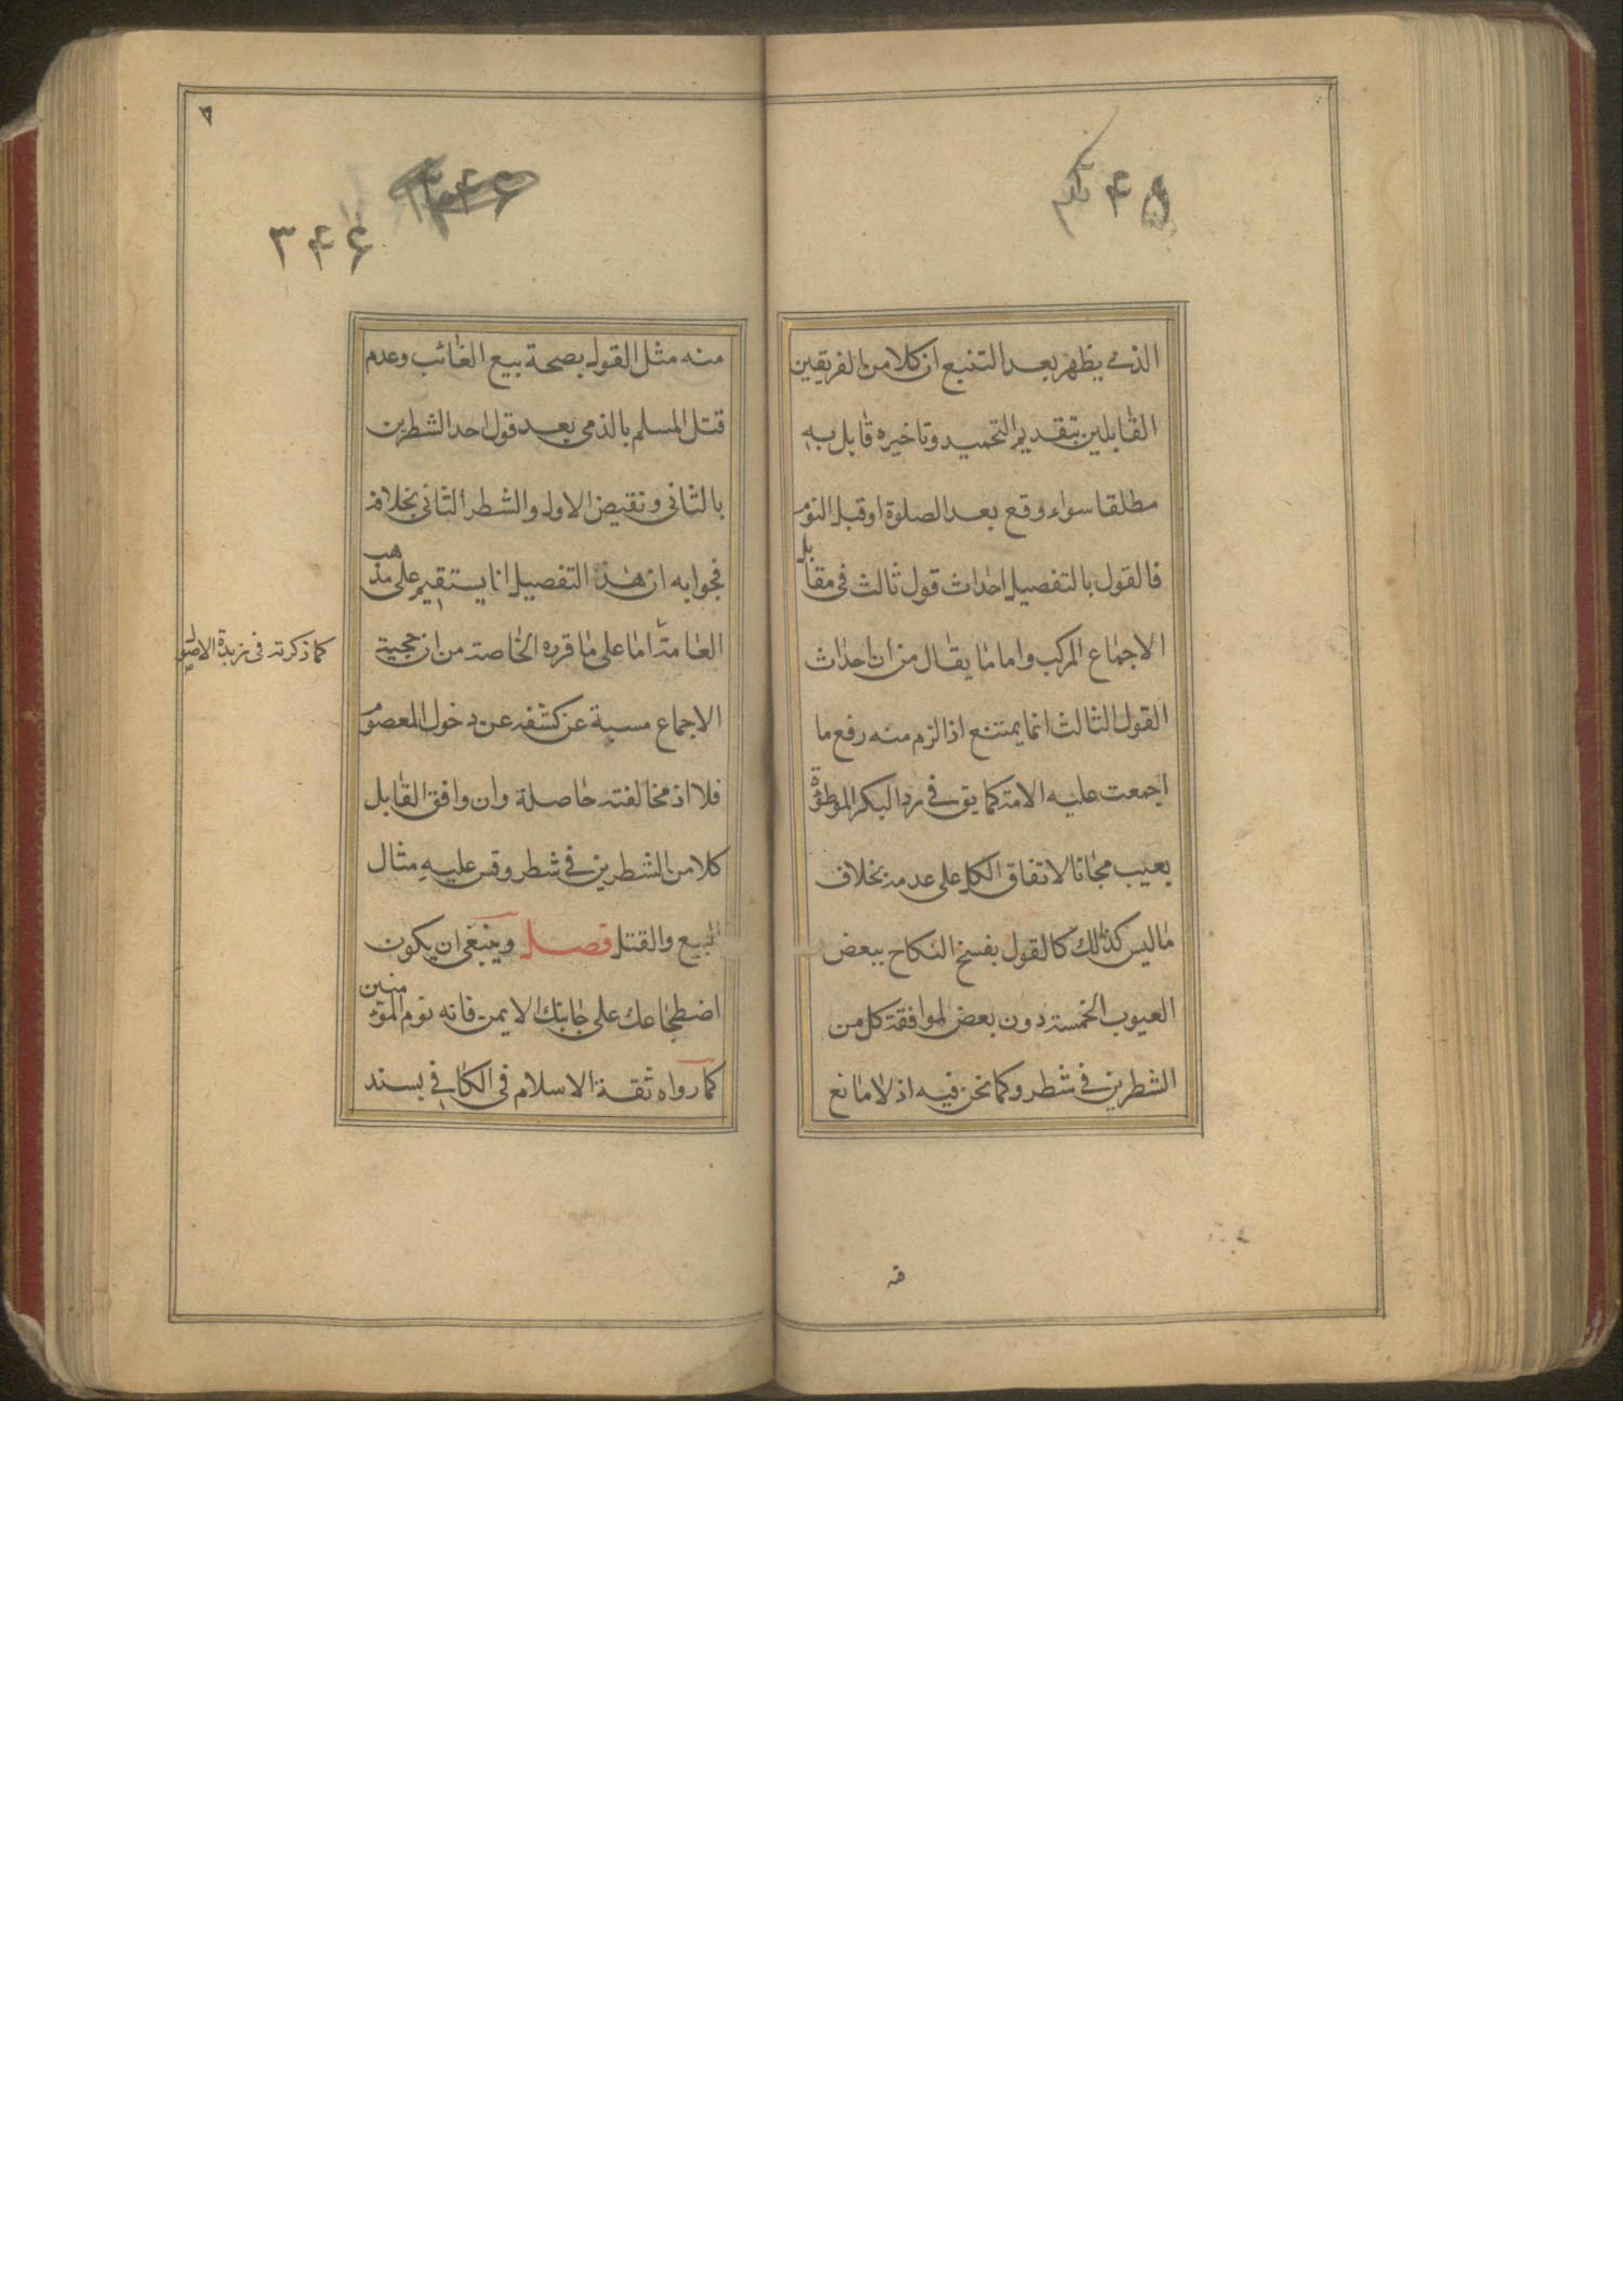 الذى يظهر بعد التتبع ان كلا من الفريقين
القايلين بتقديم التحميد وتاخيره قايل به
مطلقا سواء وقع بعد الصلوة او قبل النوم
فالقول بالتفصيل احداث قول ثالث فى مقابل
الاجماع المركب واما ما يقال من ان احداث
القول الثالث انما يمتنع اذا لزم منه رفع ما
اجمعت عليه الامة كما يق فى رد البكر الموطؤة
بعيب مجانا لاتفاق الكل على عدمه بخلاف
ما ليس كذلك كالقول بفسخ النكاح ببعض
العيوب الخمسة دون بعض لموافقة كل من
الشطرين فى شطر وكما نحن فيه اذ لا مانع
منه مثل القول بصحة بيع الغائب وعدم
قتل المسلم بالذمى بعد قول احد الشطرين
بالثانى ونقيض الاول والشطر الثانى بخلافه
فجوابه ان هذا التفصيل انا يستقيم على مذهب
العامة اما على ما قرره الخاصة من ان حجية
الاجماع مسببة عن كشفه عن دخول المعصوم
فلا اذ مخالفته حاصلة وان وافق القايل
كلا من الشطرين فى شطر وقس عليه مثال
البيع والقتل فصل وينبغى ان يكون
اضطجاعك على جانبك الايمن فانه نوم المؤمنين
كما رواه ثقة الاسلام فى الكافى بسند
كما ذكرته فى زبدة الاصول
۳۴۶